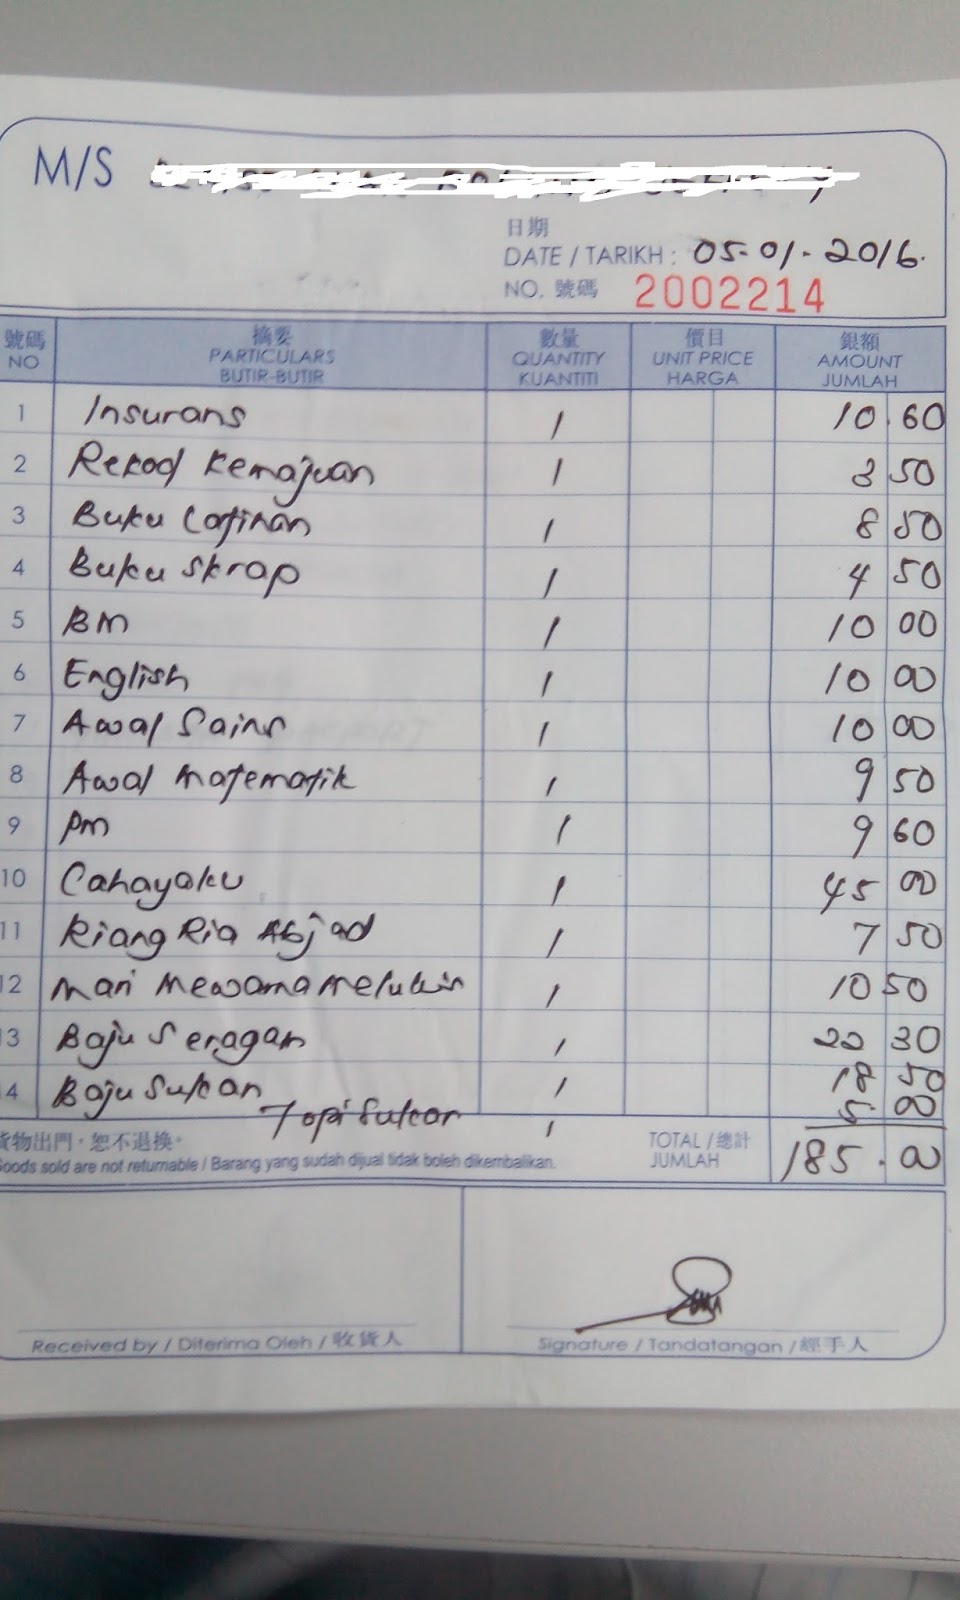 M/S
日期
DATE / TARIKH : 05-01-2016.
NO. 號碼 2002214
號碼 摘要 數量 價目 銀額
NO PARTICULARS QUANTITY UNIT PRICE AMOUNT
BUTIR-BUTIR KUANTITI HARGA JUMLAH
1 Insurans 1 10.60
2 Rekod Kemajuan 1 3 50
3 Buku Latihan 1 8 50
4 Buku Skrap 1 4 50
5 BM 1 10 00
6 English 1 10 00
7 Awal Sains 1 10 00
8 Awal Matematik 1 9 50
9 PM 1 9 60
10 Cahayaku 1 45 00
11 Riang Ria Abjad 1 7 50
12 Mari Mewarna Melukis 1 10 50
13 Baju Seragam 1 22 30
14 Baju Sukan 1 18 50
Topi Sukan 1 5 00
貨物出門，恕不退換。 TOTAL / 總計 185.00
Goods sold are not returnable / Barang yang sudah dijual tidak boleh dikembalikan. JUMLAH
Received by / Diterima Oleh / 收貨人 Signature / Tandatangan / 經手人